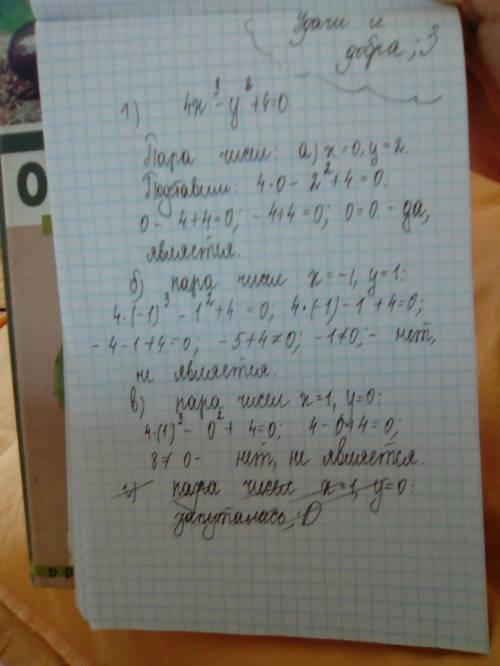 Удачи и
добра ;3
1) 4x³ - y² + 4 = 0
Пара чисел: а) x = 0, y = 2.
Подставим: 4·0 - 2² + 4 = 0.
0 - 4 + 4 = 0; - 4 + 4 = 0; 0 = 0. - да,
является.
б) пара чисел x = -1, y = 1:
4·(-1)³ - 1² + 4 = 0; 4·(-1) - 1 + 4 = 0;
- 4 - 1 + 4 = 0; - 5 + 4 ≠ 0; - 1 ≠ 0; - нет,
не является.
в) пара чисел x = 1, y = 0:
4·(1)³ - 0² + 4 = 0; 4 - 0 + 4 = 0;
8 ≠ 0 - нет, не является.
г) пара чисел x = 1, y = 0:
запуталась ;D
О